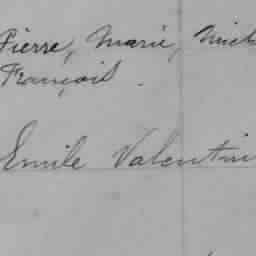 Pierre, Marie, Mich
François.
Emile Valentin